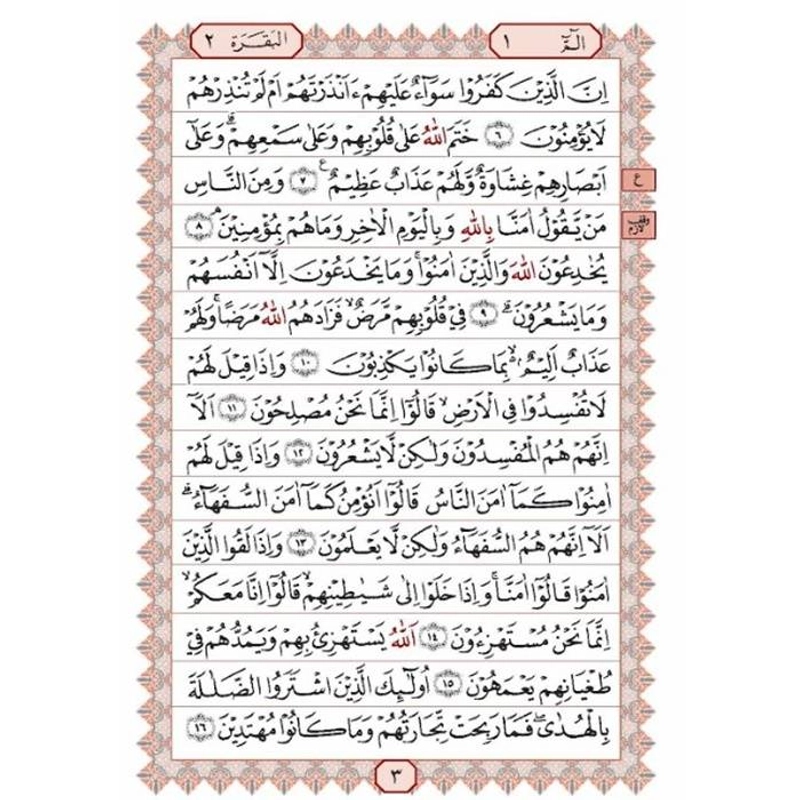 الٓمّٓ ١
البقرة ٢
اِنَّ الَّذِيْنَ كَفَرُوْا سَوَآءٌ عَلَيْهِمْ ءَاَنْذَرْتَهُمْ اَمْ لَمْ تُنْذِرْهُمْ
لَا يُؤْمِنُوْنَ ۝٦ خَتَمَ اللّٰهُ عَلٰى قُلُوْبِهِمْ وَعَلٰى سَمْعِهِمْ ؕ وَعَلٰٓى
اَبْصَارِهِمْ غِشَاوَةٌ ؗ وَّلَهُمْ عَذَابٌ عَظِيْمٌ ۝٧ وَمِنَ النَّاسِ
ع
مَنْ يَّقُوْلُ اٰمَنَّا بِاللّٰهِ وَبِالْيَوْمِ الْاٰخِرِ وَمَا هُمْ بِمُؤْمِنِيْنَ ۘ ۝٨
وقف لازم
يُخٰدِعُوْنَ اللّٰهَ وَالَّذِيْنَ اٰمَنُوْا ۚ وَمَا يَخْدَعُوْنَ اِلَّآ اَنْفُسَهُمْ
وَمَا يَشْعُرُوْنَ ؕ ۝٩ فِيْ قُلُوْبِهِمْ مَّرَضٌ ۙ فَزَادَهُمُ اللّٰهُ مَرَضًا ۚ وَلَهُمْ
عَذَابٌ اَلِيْمٌۢ ۙ۬ بِمَا كَانُوْا يَكْذِبُوْنَ ۝١٠ وَاِذَا قِيْلَ لَهُمْ
لَا تُفْسِدُوْا فِي الْاَرْضِ ۙ قَالُوْٓا اِنَّمَا نَحْنُ مُصْلِحُوْنَ ۝١١ اَلَآ
اِنَّهُمْ هُمُ الْمُفْسِدُوْنَ وَلٰكِنْ لَّا يَشْعُرُوْنَ ۝١٢ وَاِذَا قِيْلَ لَهُمْ
اٰمِنُوْا كَمَآ اٰمَنَ النَّاسُ قَالُوْٓا اَنُؤْمِنُ كَمَآ اٰمَنَ السُّفَهَآءُ ؕ
اَلَآ اِنَّهُمْ هُمُ السُّفَهَآءُ وَلٰكِنْ لَّا يَعْلَمُوْنَ ۝١٣ وَاِذَا لَقُوا الَّذِيْنَ
اٰمَنُوْا قَالُوْٓا اٰمَنَّا ۚ وَاِذَا خَلَوْا اِلٰى شَيٰطِيْنِهِمْ ۙ قَالُوْٓا اِنَّا مَعَكُمْ ۙ
اِنَّمَا نَحْنُ مُسْتَهْزِءُوْنَ ۝١٤ اَللّٰهُ يَسْتَهْزِئُ بِهِمْ وَيَمُدُّهُمْ فِيْ
طُغْيَانِهِمْ يَعْمَهُوْنَ ۝١٥ اُولٰٓئِكَ الَّذِيْنَ اشْتَرَوُا الضَّلٰلَةَ
بِالْهُدٰى ۪ فَمَا رَبِحَتْ تِّجَارَتُهُمْ وَمَا كَانُوْا مُهْتَدِيْنَ ۝١٦
٣